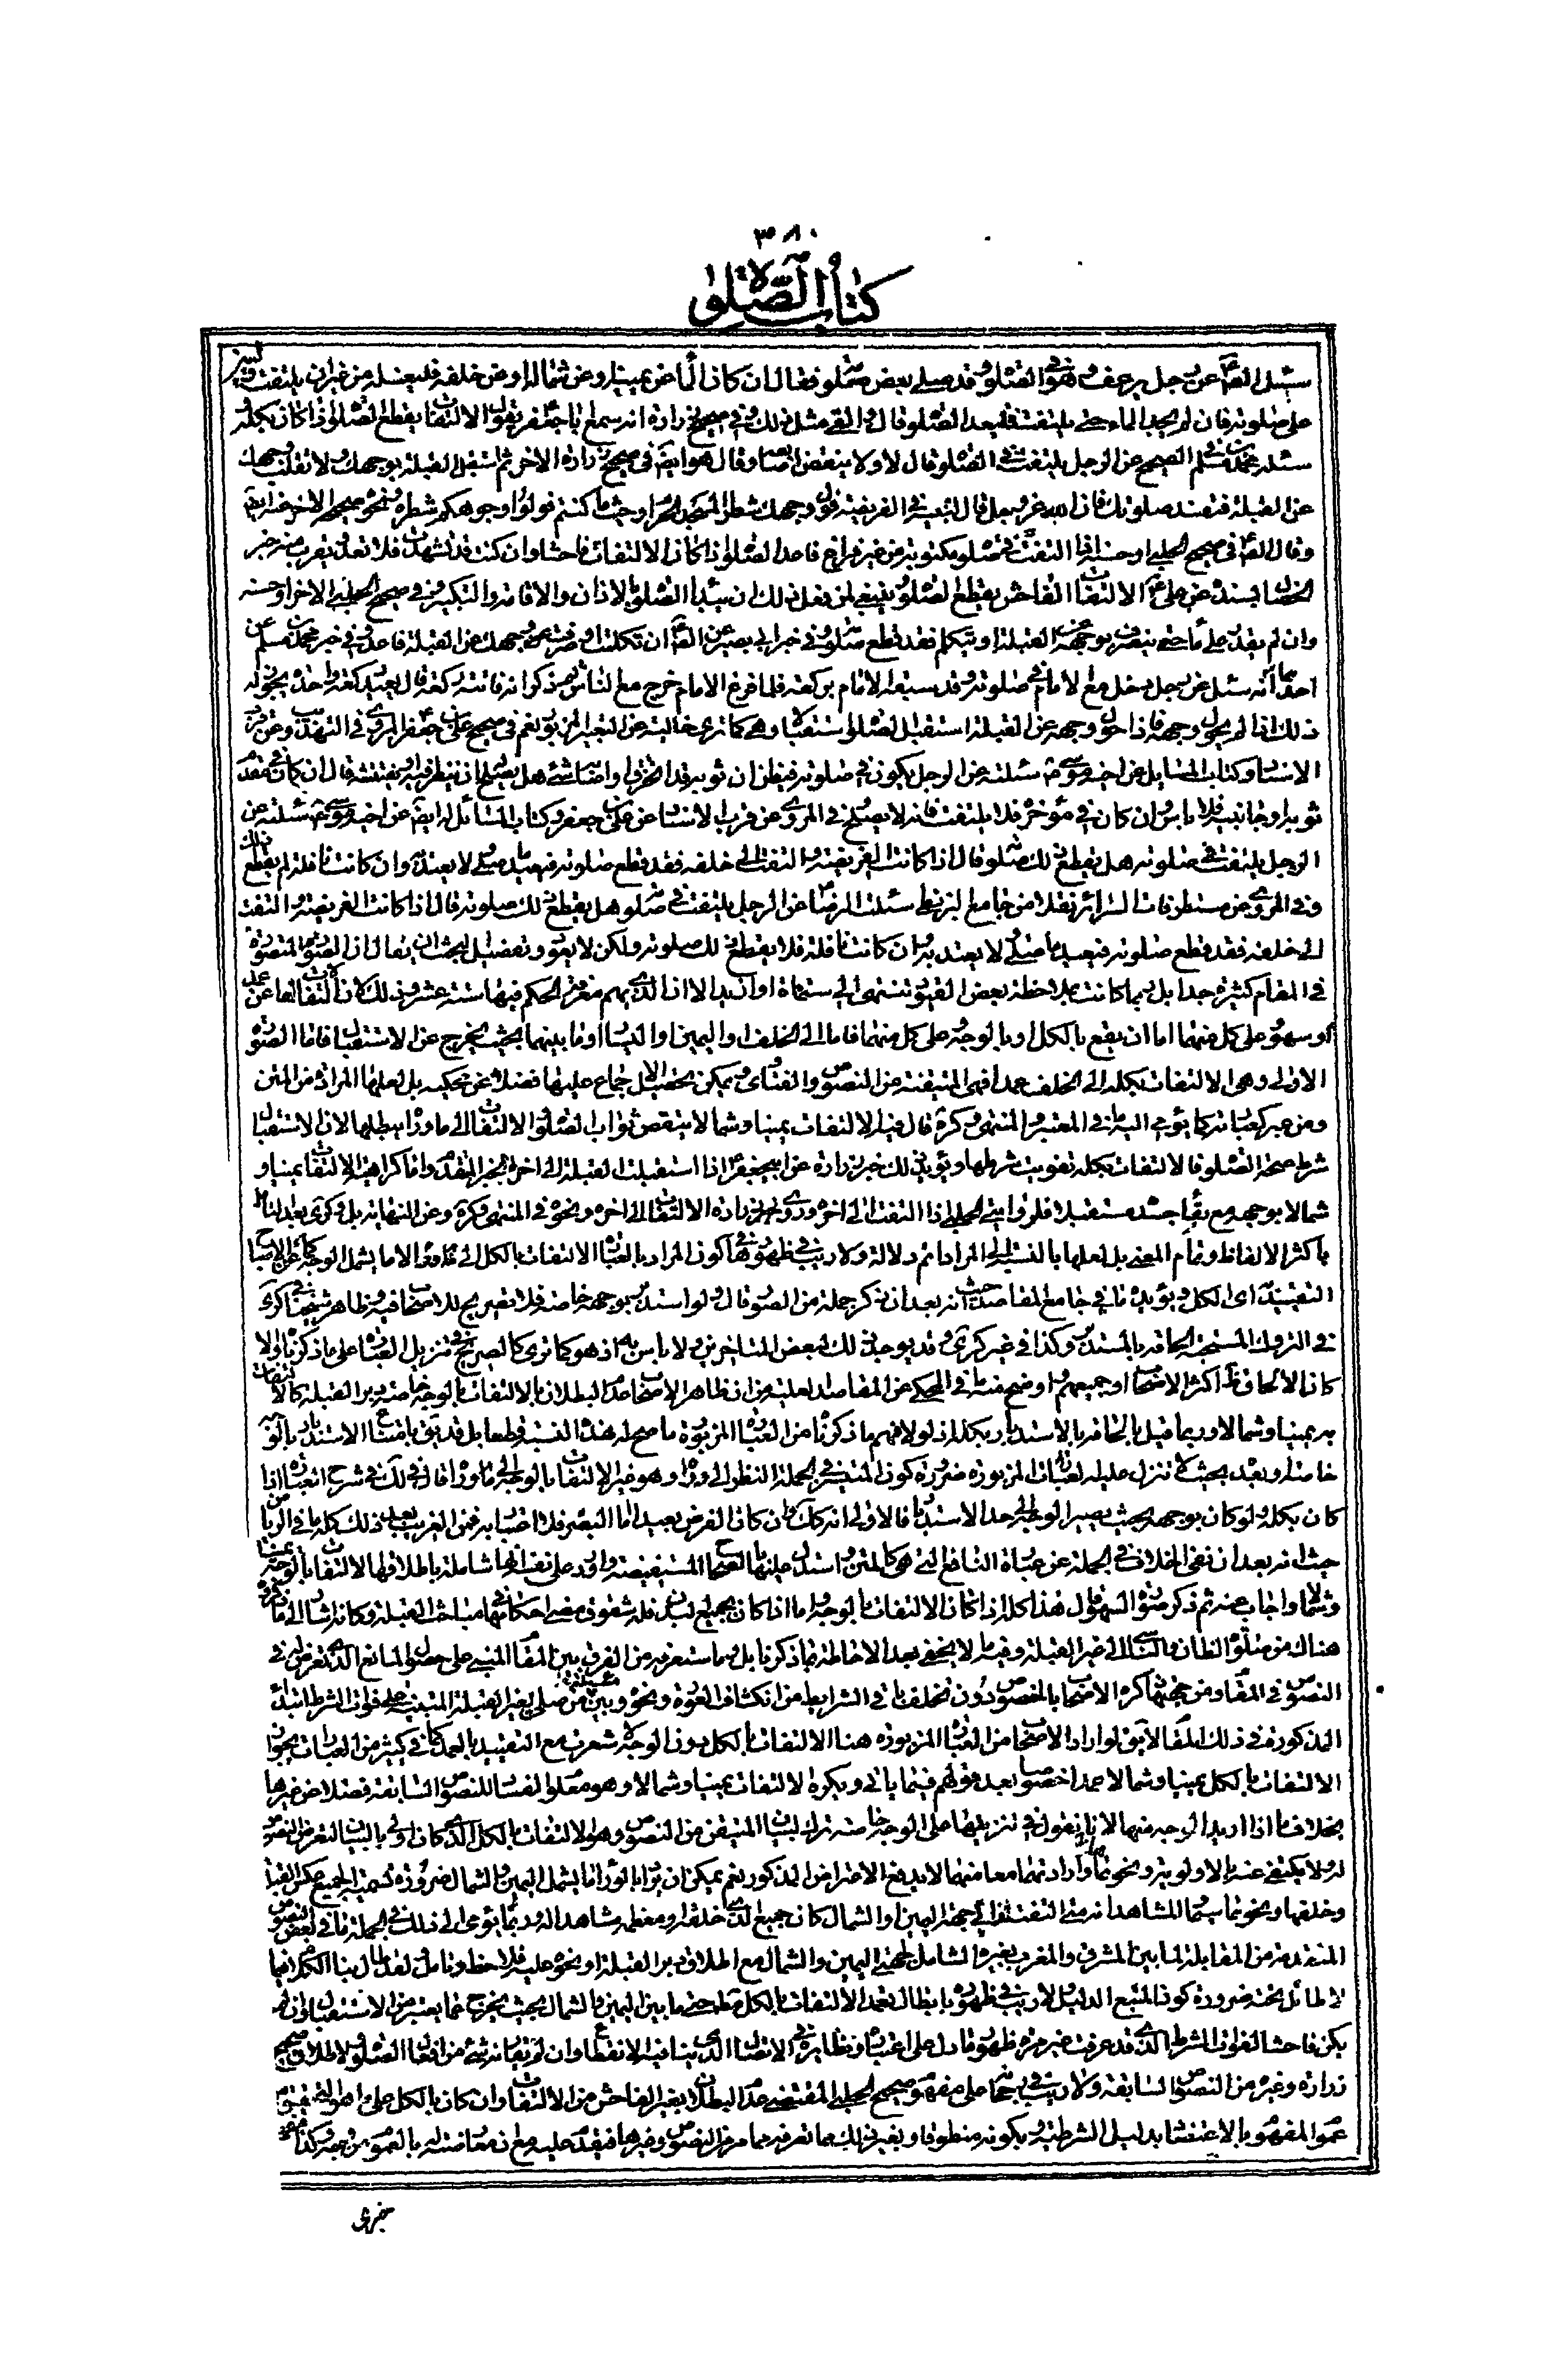 ٣٨٠
كتاب الصلوة
سئل الصّ عن رجل يرعف وهو في الصلوة وقد صلى بعض صلوته فقال ان كان الماء عن يمينه او عن شماله او عن خلفه فليغسله من غير ان يلتفت وليبن
على صلوته فان لم يجد الماء حتى يلتفت فليعد الصلوة قال والقى مثل ذلك وفي صحيح زرارة انه سمع ابا جعفر يقول الالتفات يقطع الصلوة اذا كان بكله و
سئله محمد بن مسلم في الصحيح عن الرجل يلتفت في الصلوة قال لا ولا ينقض اصابعه وقال هو ايضا في صحيح زرارة الاخر ثم استقبل القبلة بوجهك ولا تقلب وجهك
عن القبلة فتفسد صلوتك فان الله عز وجل قال لنبيه في الفريضة فول وجهك شطر المسجد الحرام وحيث ما كنتم فولوا وجوهكم شطره ونحوه صحيحه الاخر عنه ايضا
وقال الصّ في صحيح الحلبي او حسنه اذا التفت في صلوة مكتوبة من غير فراغ فاعد الصلوة اذا كان الالتفات فاحشا وان كنت قد تشهدت فلا تعد ويقرب منه خبر
الخصال بسنده عن علي الالتفات الفاحش يقطع الصلوة وينبغي لمن فعل ذلك ان يبدأ الصلوة بالاذان والاقامة والتكبير وفي صحيح الحلبي الاخر او حسنه
وان لم يقدر على ماء حتى ينصرف بوجهه عن القبلة او يتكلم فقد قطع صلوته وفي خبر ابي بصير عن الصّ ان تكلمت او صرفت وجهك عن القبلة فاعد وفي خبر محمد بن مسلم عن
احدهما انه سئل عن رجل دخل مع الامام في صلوته وقد سبقه الامام بركعة فلما فرغ الامام خرج مع الناس ثم ذكر انه فاتته ركعة قال يعيد ركعة واحدة يجوز له
ذلك اذا لم يحول وجهه فاذا حول وجهه عن القبلة استقبل الصلوة استقبالا وهي كما ترى خالية عن التعبير المزبور نعم في صحيح علي بن جعفر المروي في التهذيب وعن قرب
الاسناد وكتاب المسائل عن اخيه موسى سئلته عن الرجل يكون في صلوته فيظن ان ثوبه قد انخرق او اصابه شئ هل يصلح ان ينظر فيه او يفتشه قال ان كان في مقدم
ثوبه او جانبيه فلا باس وان كان في مؤخره فلا يلتفت فانه لا يصلح وفي المروي عن قرب الاسناد عن علي بن جعفر وكتاب المسائل له ايضا عن اخيه موسى سئلته عن
الرجل يلتفت في صلوته هل يقطع ذلك صلوته قال اذا كانت الفريضة والتفت الى خلفه فقد قطع صلوته فيعيد ما صلى ولا يعتد به وان كانت نافلة لم يقطع ذلك
وفي المروي عن مستطرفات السرائر نقلا من جامع البزنطي سئلت الرضا عن الرجل يلتفت في صلوته هل يقطع ذلك صلوته قال اذا كانت الفريضة والتفت
الى خلفه فقد قطع صلوته فيعيد ما صلى ولا يعتد به وان كانت نافلة فلا يقطع ذلك صلوته ولكن لا يعود وتفصيل البحث ان يقال ان الصور المتصورة
في المقام كثيرة جدا بل ربما كانت بملاحظة بعض القيود تنتهى الى ستمائة او ازيد الا ان الذي يهم معرفة الحكم فيها ستة عشر وذلك لان الالتفات اما عن عمد
او سهو وعلى كل منهما اما ان يقع بالكل او بالوجه وعلى كل منهما فاما الى الخلف او اليمين او اليسار او ما بينهما بحيث يخرج عن الاستقبال فاما الصورة
الاولى وهي الالتفات بكله الى الخلف عمدا فهي المتيقنة من النصوص والفتاوى ويمكن تحصيل الاجماع عليها فضلا عن محكيه بل لعلها المراد من المتن
ومن عبر كعبارته كما يومي اليه ما في المعتبر والمنتهى وكره قال فيه الالتفات يمينا وشمالا ينقص ثواب الصلوة والالتفات الى ما وراء يبطلها لان الاستقبال
شرط صحة الصلوة فالالتفات بكله تفويت شرطها ويؤيد ذلك خبر زرارة عن ابي جعفر اذا استقبلت القبلة الى اخر الخبر المتقدم واما كراهية الالتفات يمينا و
شمالا بوجهه مع بقاء جسده مستقبلا فلرواية الحلبي اذا التفت الى اخره وروى زرارة الالتفات الى اخره ونحوه في المنتهى وكره وعن النهاية بل وكرى بعد اتيانها
باكثر الالفاظ وتمام المعنى بل لعلها بالنسبة الى المراد اتم دلالة ولا ريب في ظهورها في كون المراد بالعبارة الالتفات بالكل الى ما وراء لا ما يشمل الوجه
التقييد اى الكل ويؤيده ما في جامع المقاصد حيث انه بعد ان ذكر جملة من الصور قال ولو استدبر بوجهه خاصة فلا تصريح للاصحاب فيه وظاهر شيخنا في كرى
في التروك المستحبة الحاقه بالمستدبر وكذا في غير كرى وقد يوجد ذلك لبعض المتاخرين ولا باس به اذ هو كما ترى كالصريح في تنزيل العبارة على ما ذكرنا والا
كان الالحاق ظاهر اكثر الاصحاب او جميعهم واوضح منه ما في المحكي عن المقاصد العلية من ان ظاهر الاصحاب عدم البطلان بالالتفات بالوجه خاصة دبر القبلة كالالتفات
به يمينا وشمالا وربما قيل بالحاقه بالاستدبار بكله اذ لولا فهم ما ذكرنا من العبارة المزبورة ما صح له هذه النسبة قطعا بل قد يق بامتناع الاستدبار بالوجه
خاصة
كان بكله ولو كان بوجهه بحيث يصير الوجه الى حد الاستدبار فالاولى انه كك وان كان الفرض بعيدا اما البصر فلا اعتبار به فمن الغريب بعد ذلك كله ما في الرياض من
حيث انه بعد ان نفى الخلاف في الجملة عن عبارة النافع التي هي كالمتن واستدل عليها بالصحاح المستفيضة واورد على نفسه انها شاملة باطلاقها الالتفات بالوجه يمينا
وشمالا واجاب عنه ثم ذكر صور السهو قال هذا كله اذا كان الالتفات بالوجه واما اذا كان بجميع البدن فله شقوق مضى احكامها في مباحث القبلة وكانه اشار الى ما ذكره
هناك من صلوة الظان والناسي الى غير القبلة وفيه ما لا يخفى بعد الاحاطة بما ذكرنا بل وبما ستعرفه من الفرق بين المقام المبني على حصول المانع الذي تعرض له في
النصوص وفي المقام ومن جهتها ذكره الاصحاب بالخصوص دون تخلف باقي الشرايط من انكشاف العورة ونحوه وبين من صلى بغير القبلة المبنية على فوات الشرط ابتداء
المذكورة في ذلك المقام لا يق لو اراد الاصحاب من العبارة المزبورة هنا الالتفات بالكل دون الوجه لاشعرت مع التقييد بالعمد كما في كثير من العبارات بجواز
الالتفات بالكل يمينا وشمالا عمدا خصوصا بعد قولهم فيما ياتي ويكره الالتفات يمينا وشمالا وهو معلوم الفساد للنصوص السابقة فضلا عن غيرها
بخلاف ما اذا اريد الوجه منهما لانا نقول في تنزيلها على الوجه خاصة ترك لبيان المتيقن من النصوص وهو الالتفات بالكل الذي كان اولى بالبيان
له ولا يكتفى عنه بالاولوية ونحوها وارادتهما معا منهما لا يدفع الاعتراض المذكور نعم يمكن ان يراد بالوراء ما يشمل اليمين والشمال ضرورة
وخلفها ونحوهما سيما المشاهد انه متى التفت الى جهة اليمين او الشمال كان جميع الذي خلفه ومعظمه مشاهدا له وربما يومي الى ذلك في الجملة ما في بعض النصوص
المتقدمة من المقابلة لما بين المشرق والمغرب بغيره الشامل لجهتي اليمين والشمال مع اطلاق دبر القبلة او نحوه عليه فلاحظ وتامل ولقد طال بنا الكلام فيما
لا طائل تحته ضرورة كون المتبع الدليل ولا ريب في ظهوره بابطال تعمد الالتفات بالكل مط حتى ما بين اليمين والشمال بحيث يخرج عما يعتبر من الاستقبال وان لم
يكن فاحشا لفوات الشرط الذي قد عرفت غير مرة ظهور ما دل على اعتباره ونظائره في الاتصال الذي ينافيه الانقطاع وان لم يقارنه شئ من افعال الصلوة ولاطلاق صحيح
زرارة وغيره من النصوص السابقة ولا ريب في رجحانها على مفهوم صحيح الحلبي المقتضي عدم البطلان بغير الفاحش من الالتفات وان كان بالكل على ما هو التحقيق من
عموم المفهوم بالاعتضاد بدليل الشرطية وبكونه منطوقا وبغير ذلك مما تعرفه مما مر من النصوص وغيرها فيقدم عليه مع ان معارضته له بالعموم من وجه
صغرى